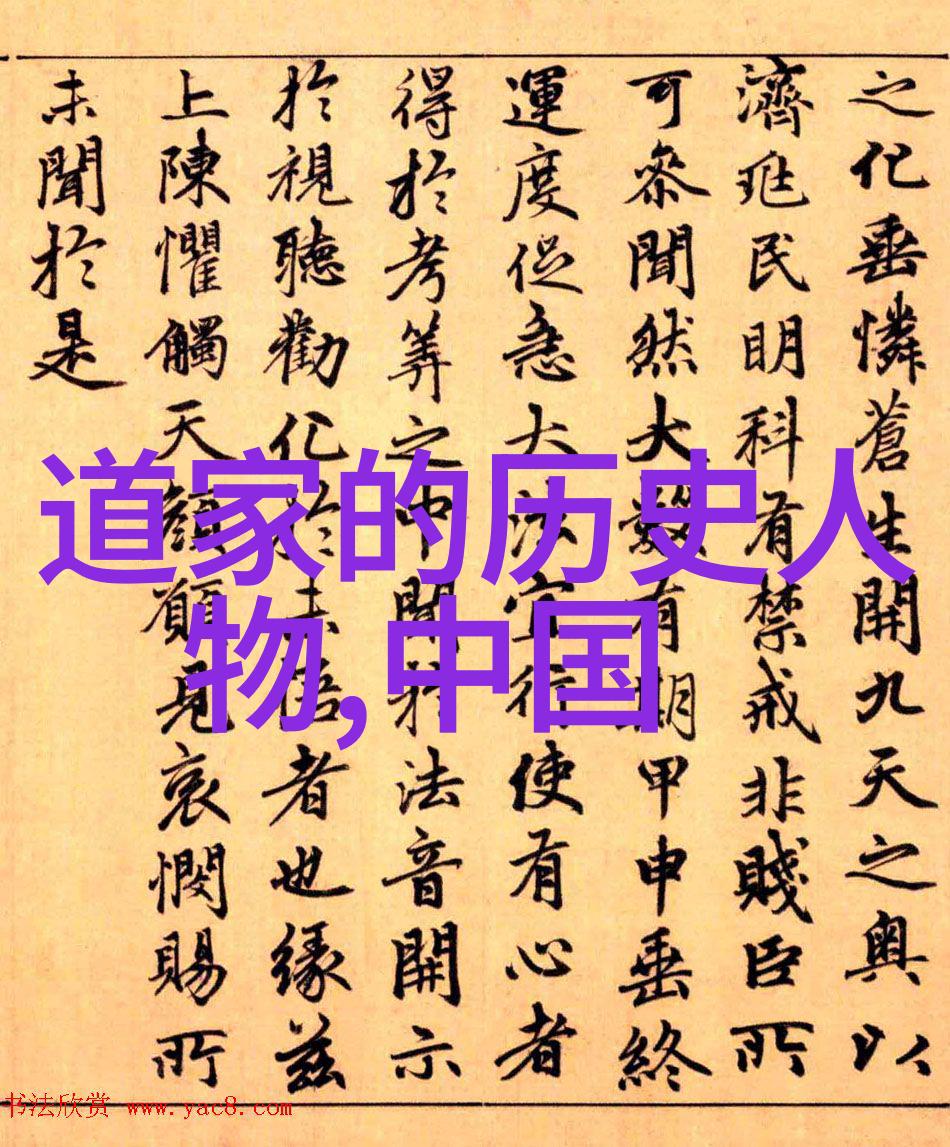 之化垂憐蒼生開九天之奥以
濟兆民明科有禁戒非賤臣所
可叅聞然大數有期甲申垂終
運度促急大法宜行使有心者
得於考筭之中聞於法音開示
於視聽勸化於未悟者也緣兹
上陳懼觸天顔願見哀憫賜所
未聞於是
道家的历史人
物,中国
书法欣赏 www.yac8.com